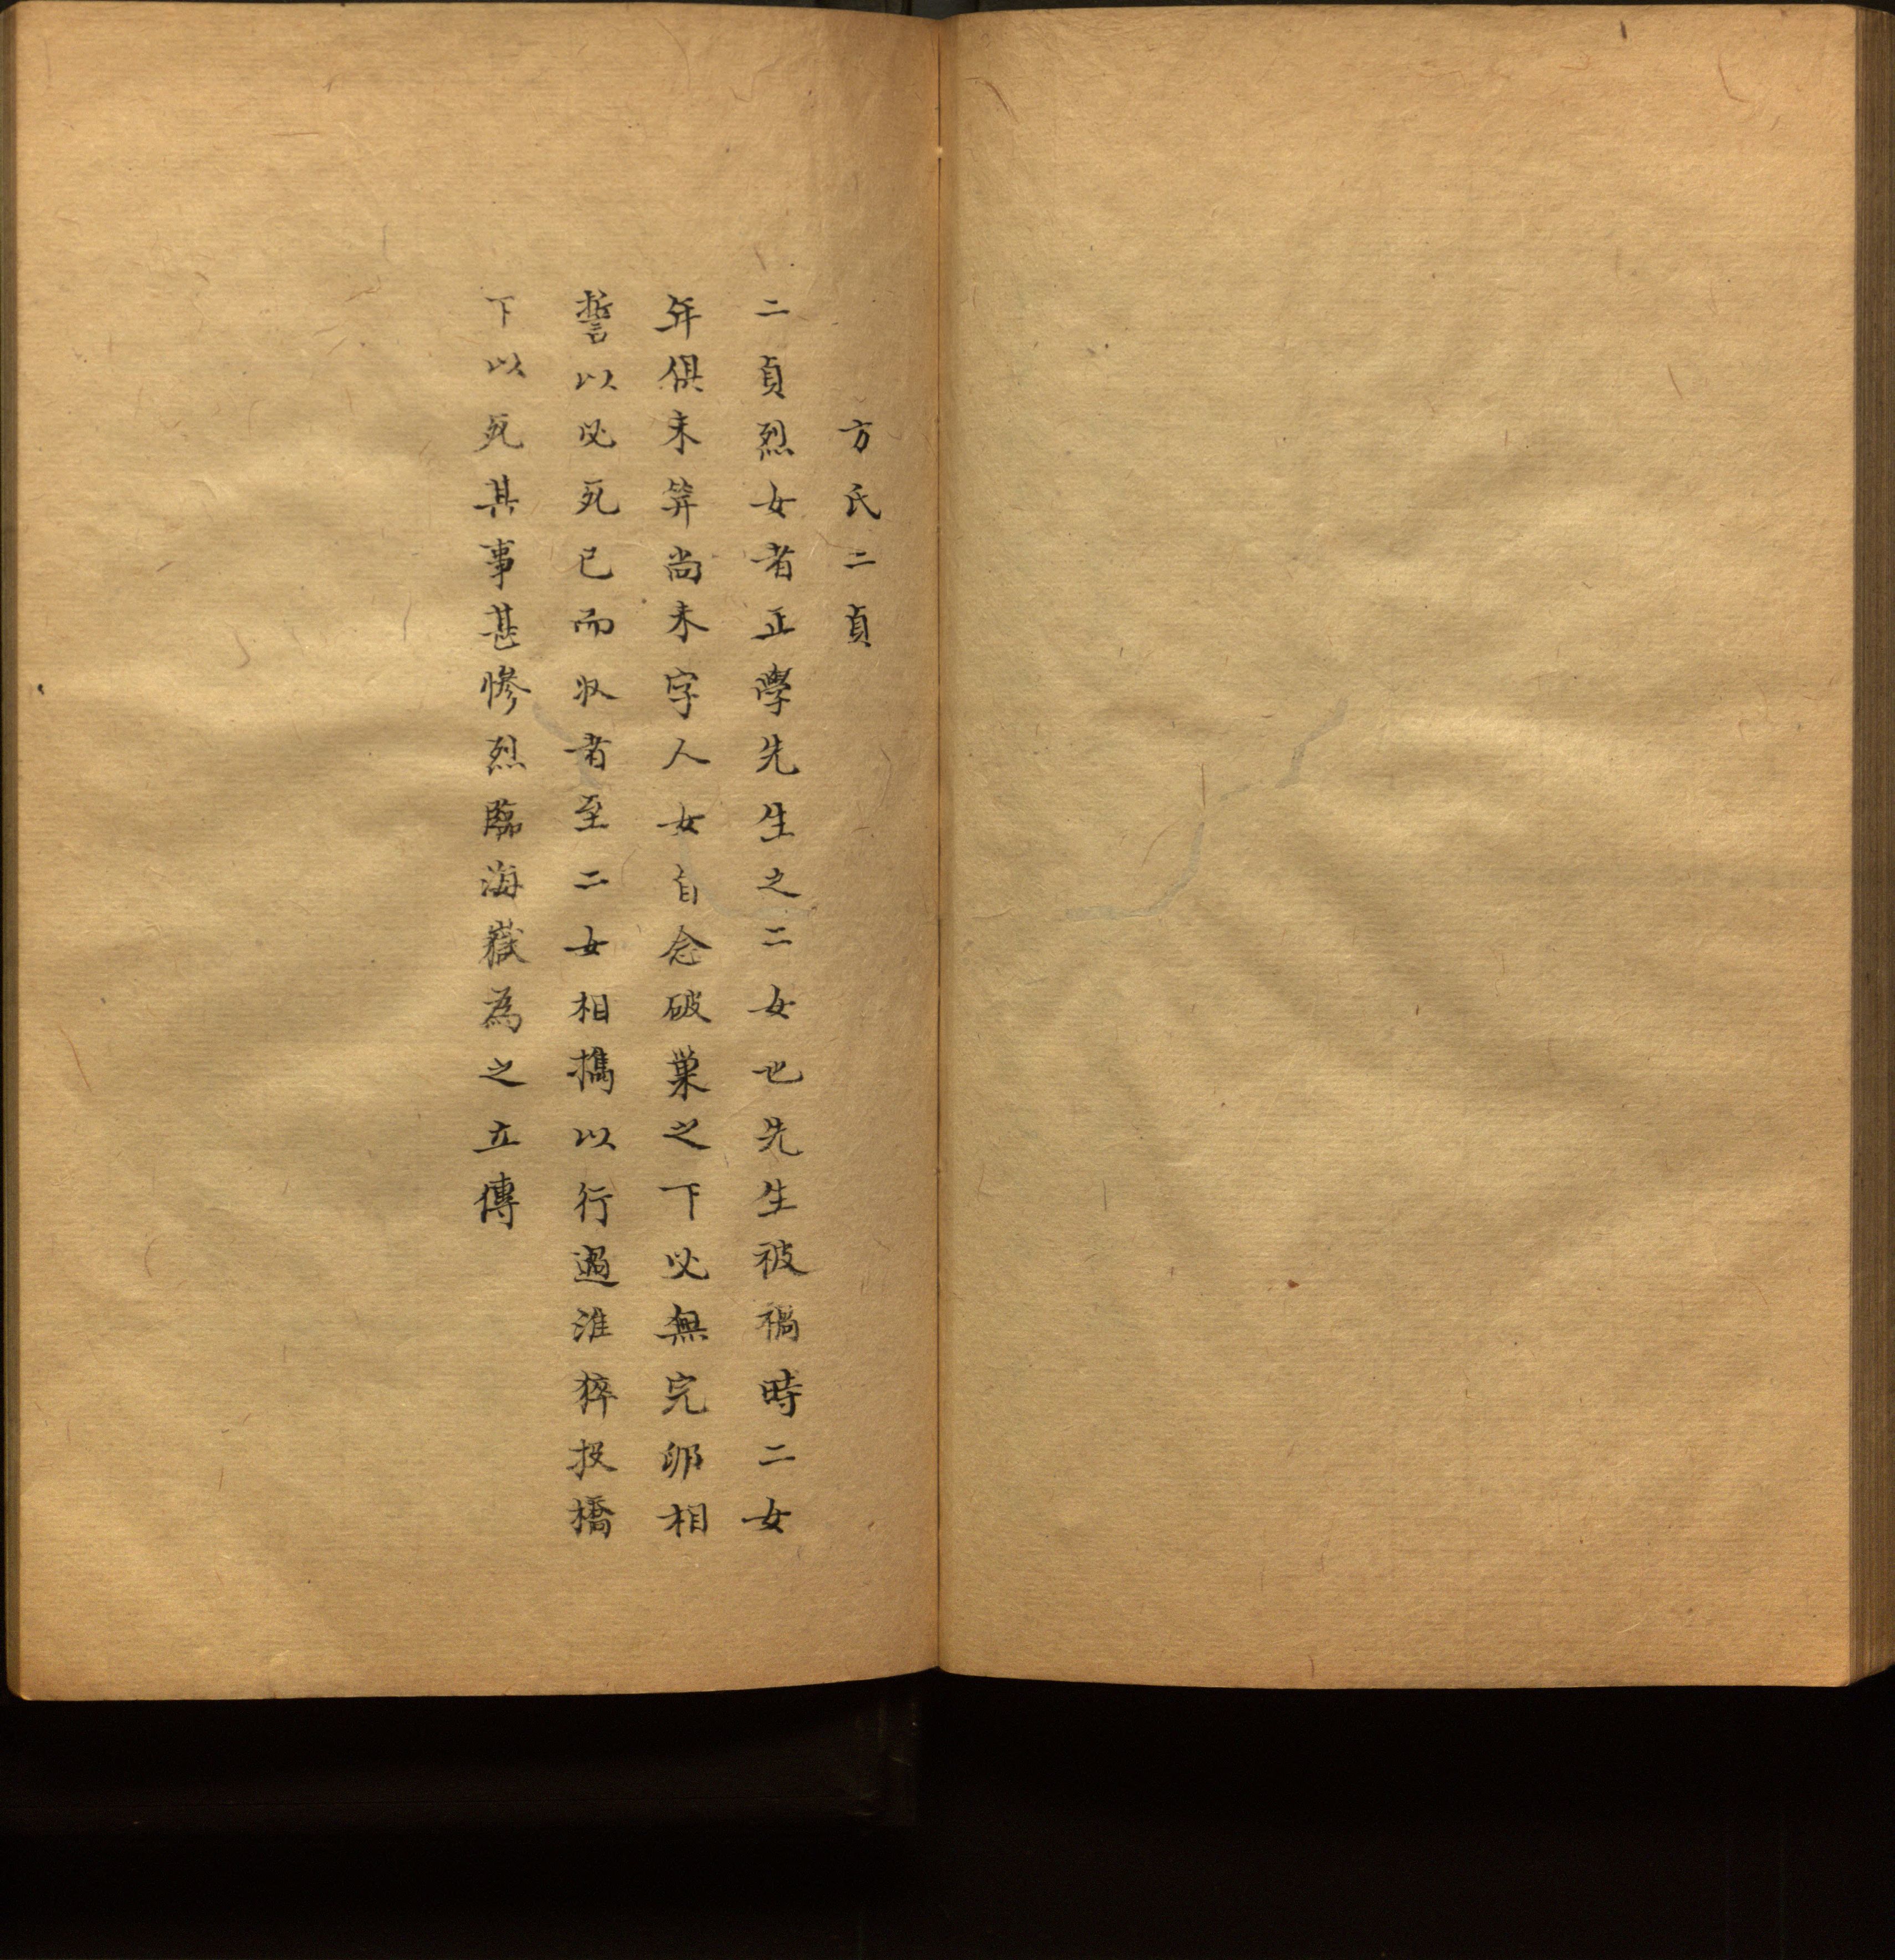 方氏二貞
二貞烈女者正學先生之二女也先生被禍時二女
年俱未筓尚未字人女自念破巢之下必無完卵相
誓以必死已而収者至二女相攜以行過淮猝投橋
下以死其事甚慘烈臨海嶽為之立傳